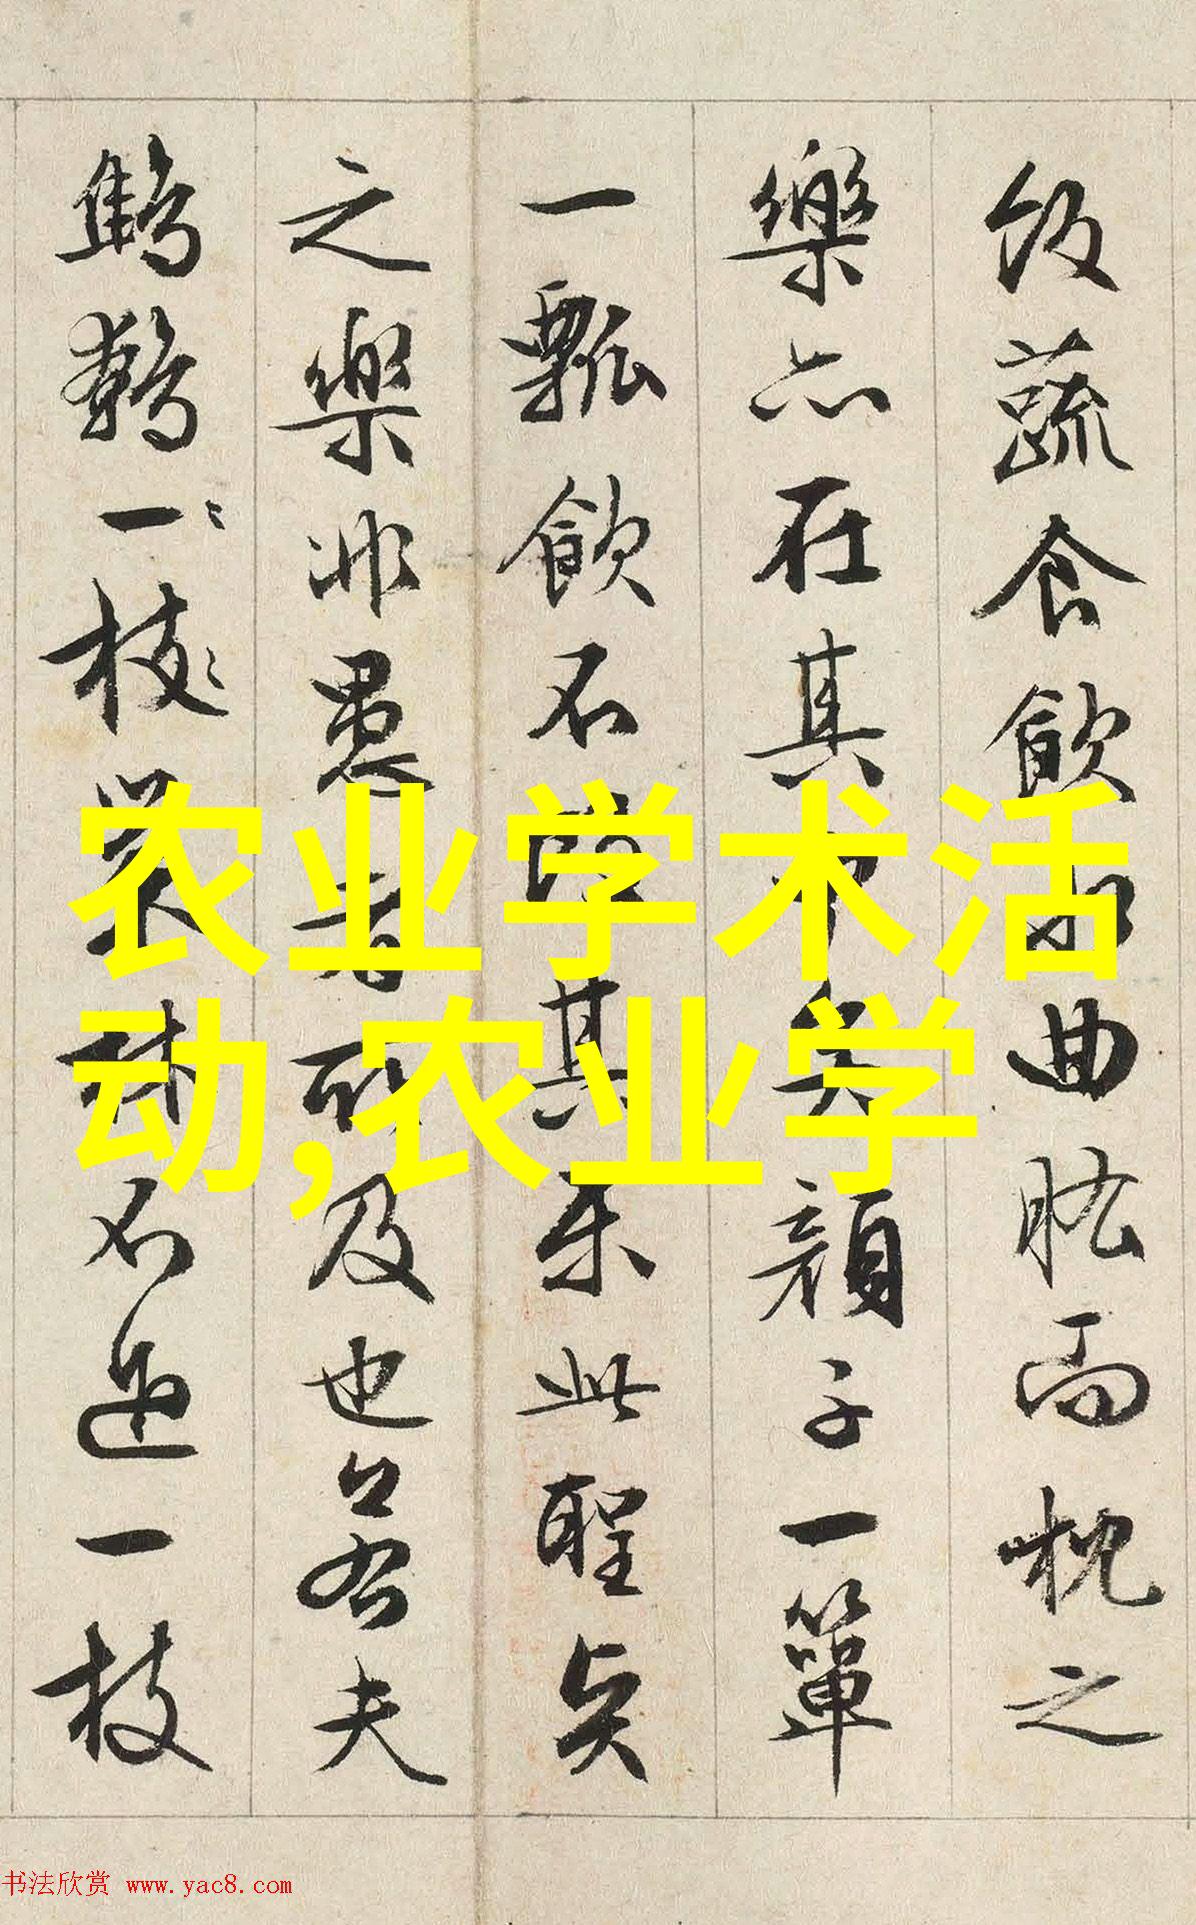 飯蔬食飲水曲肱而枕之
樂亦在其中矣顏子一簞
一瓢飲不改其樂此聖賢
之樂非愚者所及也若夫
鷦鷯一枝巢林不過一枝
农业学术活
动,农业学
书法欣赏 www.yac8.com